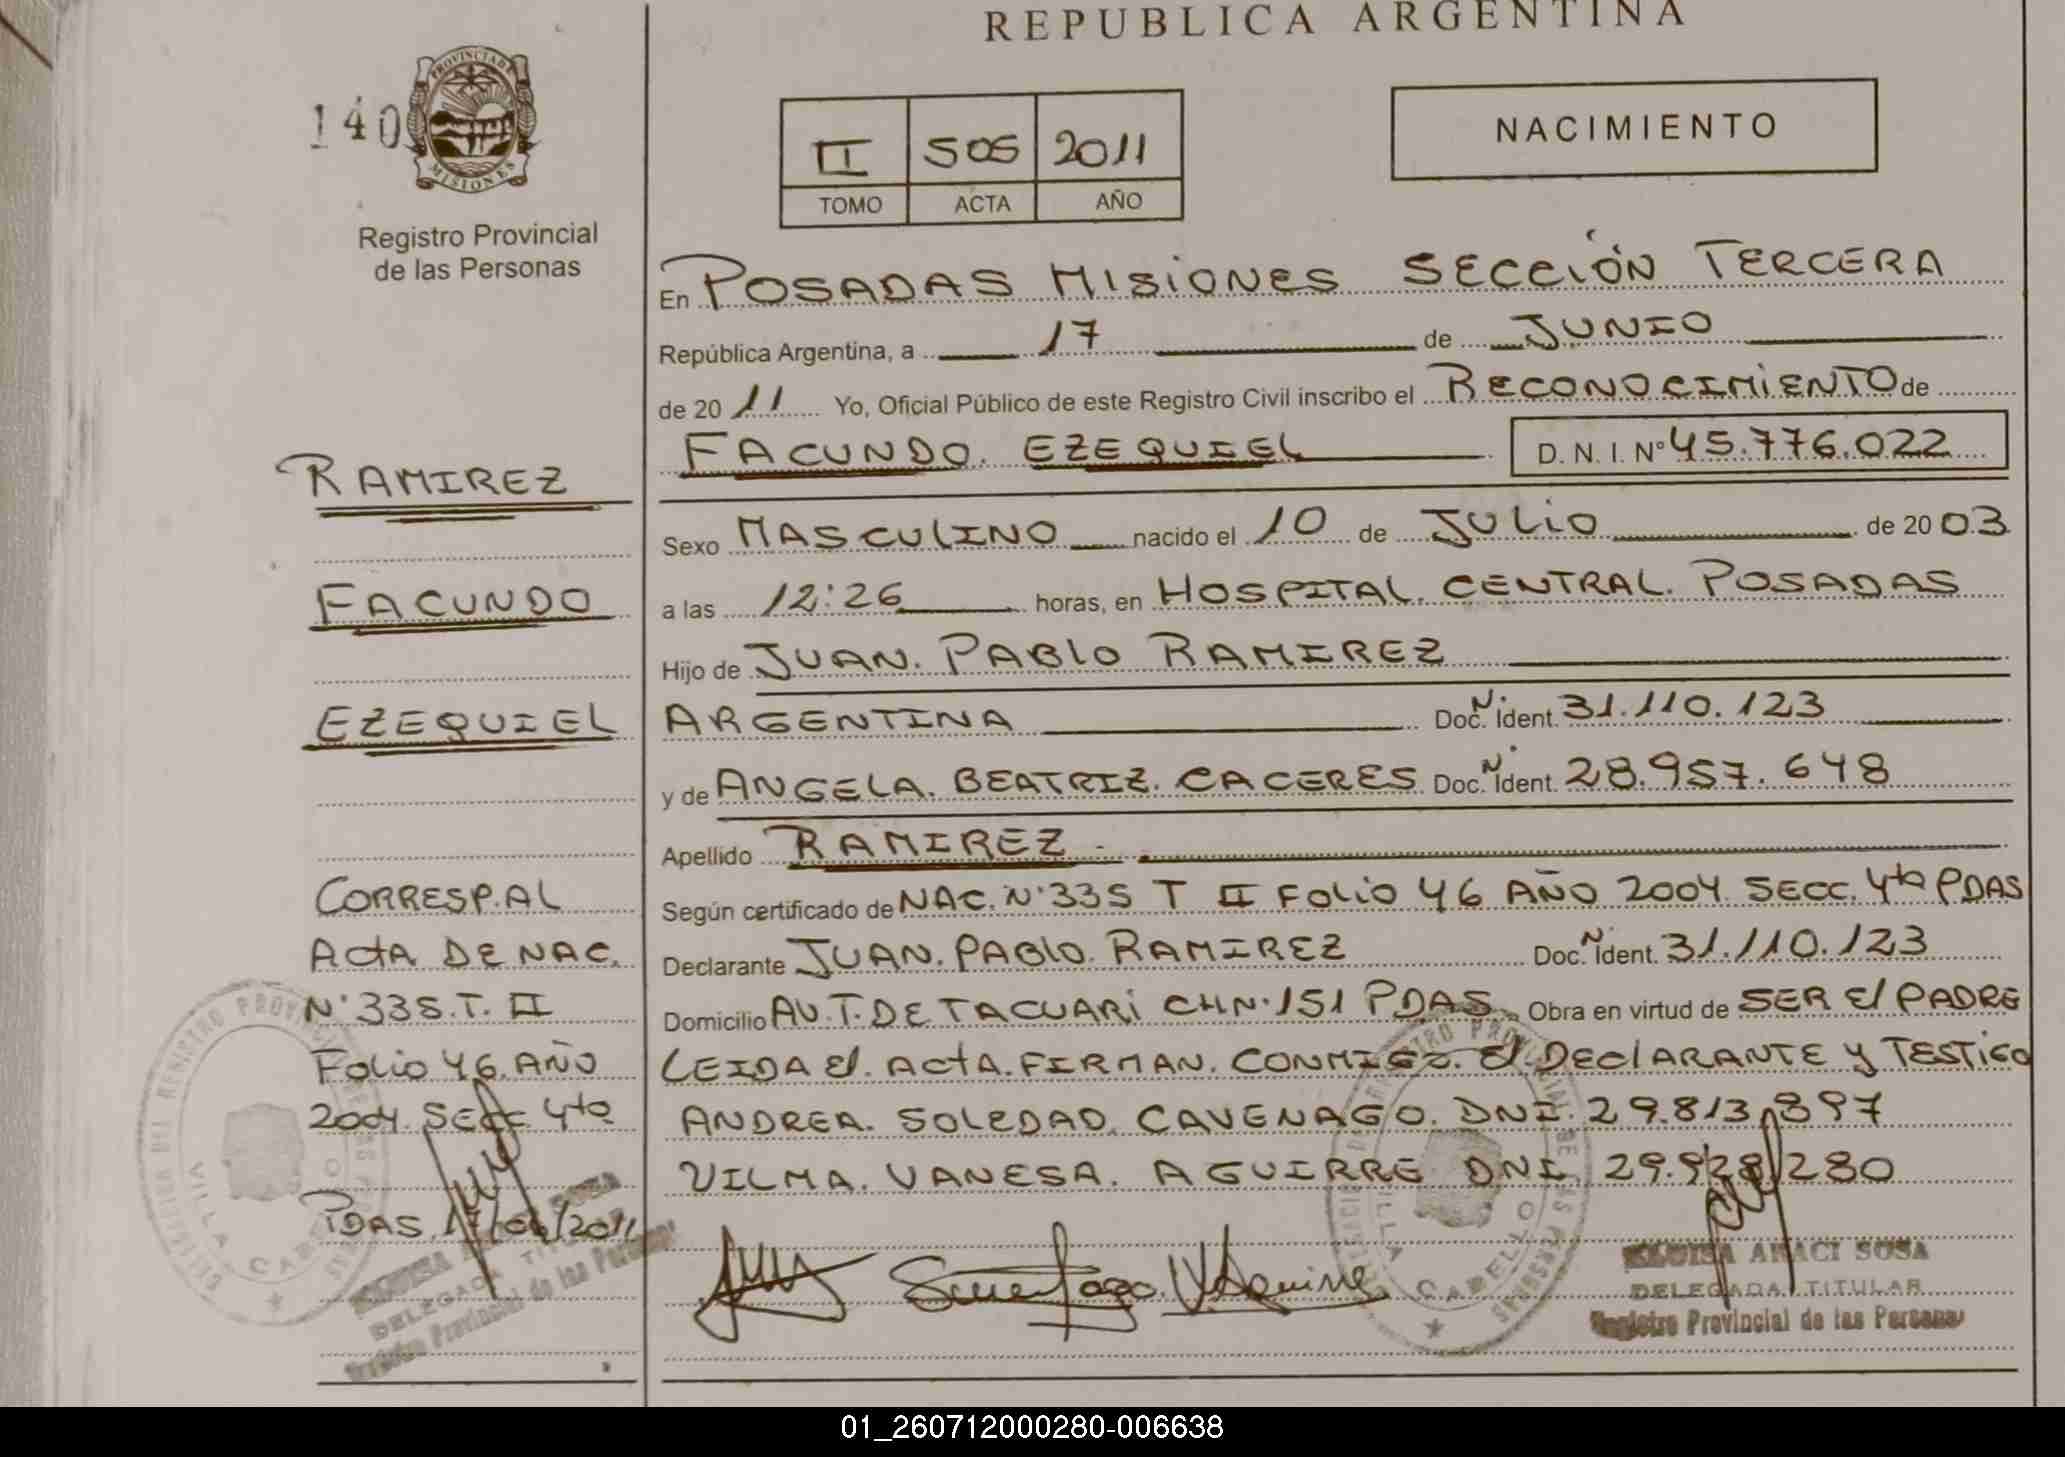 REPUBLICA ARGENTINA
140
PROVINCIA DE MISIONES
Registro Provincial
de las Personas
II 505 2011
TOMO ACTA AÑO
NACIMIENTO
En POSADAS MISIONES SECCIÓN TERCERA
República Argentina, a 17 de JUNIO
de 2011 Yo, Oficial Público de este Registro Civil inscribo el RECONOCIMIENTO de
FACUNDO. EZEQUIEL D. N. I. Nº 45.776.022
Sexo MASCULINO nacido el 10 de JULIO de 20 03
a las 12:26 horas, en HOSPITAL. CENTRAL. POSADAS
Hijo de JUAN. PABLO RAMIREZ
ARGENTINA Doc. N. Ident. 31.110.123
y de ANGELA. BEATRIZ. CACERES Doc. N. Ident. 28.957.648
Apellido RAMIREZ
Según certificado de NAC. N° 335 T II FOLIO 46 AÑO 2004. SECC. 4ta PDAS
Declarante JUAN. PABLO. RAMIREZ Doc. N. Ident. 31.110.123
Domicilio AV. T. DE TACUARI CH N° 151 PDAS. Obra en virtud de SER El PADRE
LEIDA El. ACTA. FIRMAN. CONMIGO. El DEClARANTE y TESTIGO
ANDREA. SOLEDAD. CAVENAGO. DNI. 29.813.897
VILMA. VANESA. AGUIRRE DNI. 29.928.280
RAMIREZ
FACUNDO
EZEQUIEL
CORRESP. AL
ACTA DE NAC.
N° 335. T. II
FOLIO 46. AÑO
2004. SECC 4ta
PDAS. 17/06/2011
DELEGADA TITULAR
Registro Provincial de las Personas
ARACI SOSA
DELEGADA TITULAR
Registro Provincial de las Personas
VILLA CABELLO
VILLA CABELLO
01_260712000280-006638